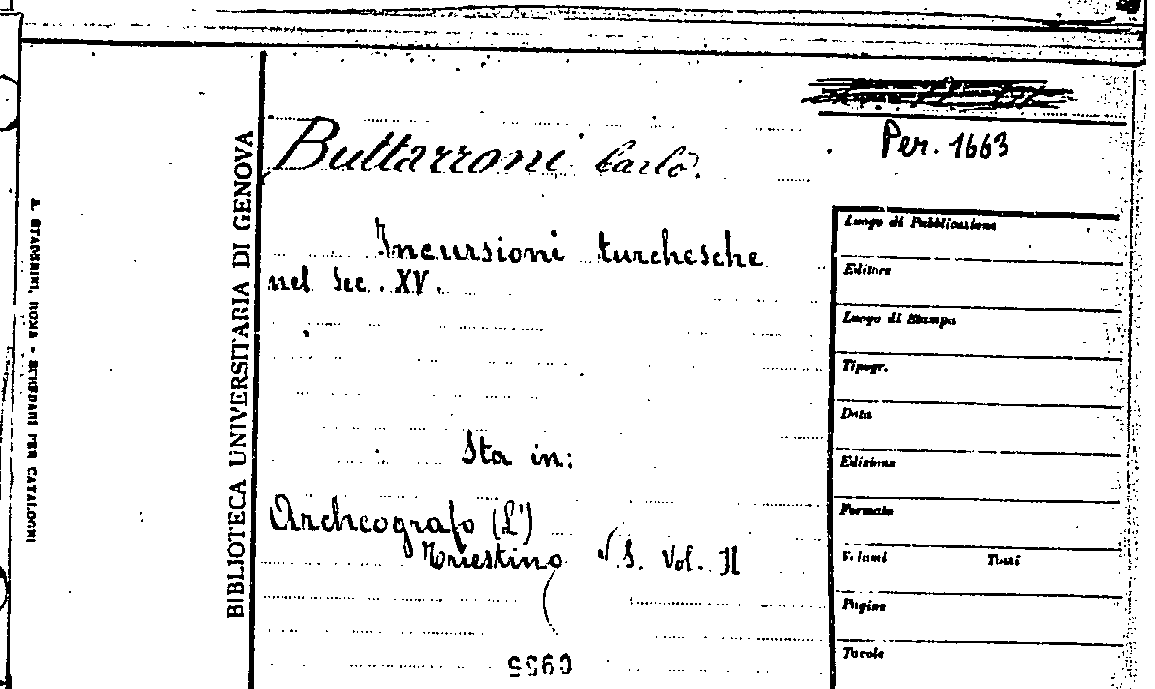 Per. 1663
Buttarroni Carlo.
Incursioni turchesche
nel Sec. XV.
Sta in:
Archeografo (L')
Triestino
S. Vol. II
BIBLIOTECA UNIVERSITARIA DI GENOVA
STADERINI, ROMA - SCHEDARI PER CATALOGHI
Luogo di Pubblicazione
Editore
Luogo di Stampa
Tipogr.
Data
Edizione
Formato
Volumi Tomi
Pagine
Tavole